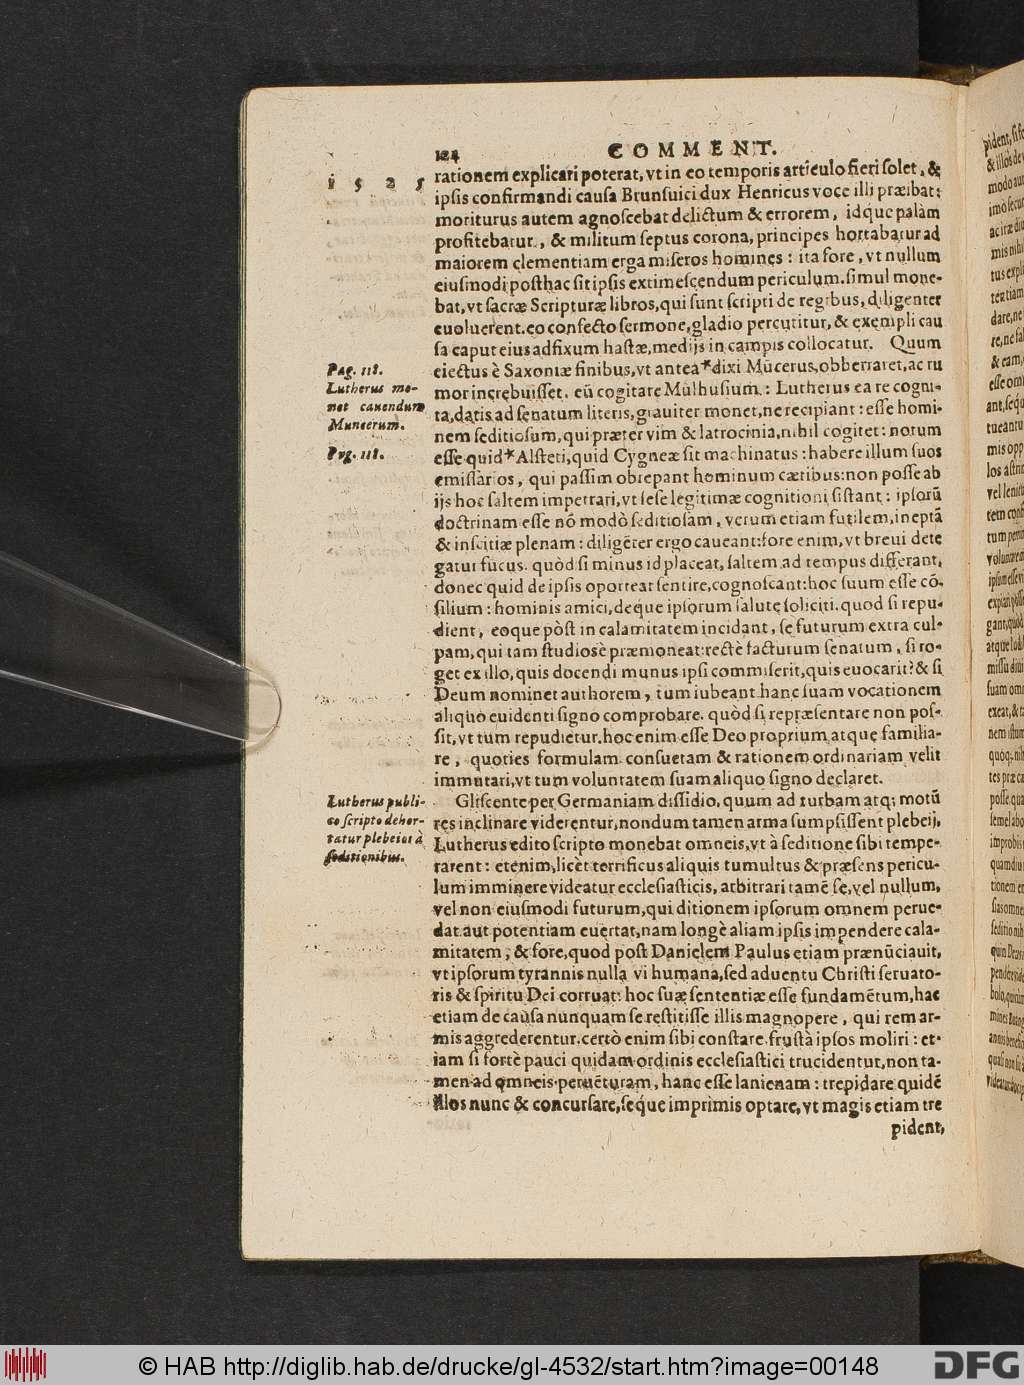 124 COMMENT.
1 5 2 5
rationem explicari poterat, vt in eo temporis articulo fieri solet, &
ipsis confirmandi causa Brunsuici dux Henricus voce illi præibat:
moriturus autem agnoscebat delictum & errorem, idque palàm
profitebatur, & militum septus corona, principes hortabatur ad
maiorem clementiam erga miseros homines: ita fore, vt nullum
eiusmodi posthac sit ipsis extimescendum periculum. simul mone-
bat, vt sacræ Scripturæ libros, qui sunt scripti de regibus, diligenter
euoluerent. eo confecto sermone, gladio percutitur, & exempli cau
sa caput eius adfixum hastæ, medijs in campis collocatur. Quum
eiectus è Saxoniæ finibus, vt antea*dixi Mũcerus, obberraret, ac ru
mor increbuisset, eũ cogitare Mulhusium: Lutherus ea re cogni-
ta, datis ad senatum literis, grauiter monet, ne recipiant: esse homi-
nem seditiosum, qui præter vim & latrocinia, nihil cogitet: notum
esse quid*Alsteti, quid Cygneæ sit machinatus: habere illum suos
emissarios, qui passim obrepant hominum cœtibus: non posse ab
ijs hoc saltem impetrari, vt sese legitimæ cognitioni sistant: ipsorũ
doctrinam esse nõ modò seditiosam, verum etiam futilem, ineptã
& inscitiæ plenam: diligẽter ergo caueant: fore enim, vt breui dete
gatur fucus. quòd si minus id placeat, saltem ad tempus differant,
donec quid de ipsis oporteat sentire, cognoscant: hoc suum esse cõ-
silium: hominis amici, deque ipsorum salute soliciti. quod si repu-
dient, eoque pòst in calamitatem incidant, se futurum extra cul-
pam, qui tam studiosè præmoneat: rectè facturum senatum, si ro-
get ex illo, quis docendi munus ipsi commiserit, quis euocarit? & si
Deum nominet authorem, tum iubeant hanc suam vocationem
aliquo euidenti signo comprobare. quòd si repræsentare non pos-
sit, vt tum repudietur. hoc enim esse Deo proprium atque familia-
re, quoties formulam consuetam & rationem ordinariam velit
immutari, vt tum voluntatem suam aliquo signo declaret.
Gliscente per Germaniam dissidio, quum ad turbam atq; motũ
res inclinare viderentur, nondum tamen arma sumpsissent plebeij,
Lutherus edito scripto monebat omneis, vt à seditione sibi tempe-
rarent: etenim, licèt terrificus aliquis tumultus & præsens pericu-
lum imminere videatur ecclesiasticis, arbitrari tamẽ se, vel nullum,
vel non eiusmodi futurum, qui ditionem ipsorum omnem perue-
dat aut potentiam euertat, nam longè aliam ipsis impendere cala-
mitatem, & fore, quod post Danielem Paulus etiam prænũciauit,
vt ipsorum tyrannis nulla vi humana, sed aduentu Christi seruato-
ris & spiritu Dei corruat: hoc suæ sententiæ esse fundamẽtum, hac
etiam de causa nunquam se restitisse illis magnopere, qui rem ar-
mis aggrederentur. certò enim sibi constare, frustà ipsos moliri: et-
iam si fortè pauci quidam ordinis ecclesiastici trucidentur, non ta-
men ad omneis peruẽturam, hanc esse lanienam: trepidare quidẽ
illos nunc & concursare, seque imprimis optare, vt magis etiam tre
pident,
Pag. 118.
Lutherus mo-
net cauendum
Muncerum.
Pag. 118.
Lutherus publi-
co scripto dehor-
tatur plebeios à
seditionibus.
© HAB http://diglib.hab.de/drucke/gl-4532/start.htm?image=00148
DFG